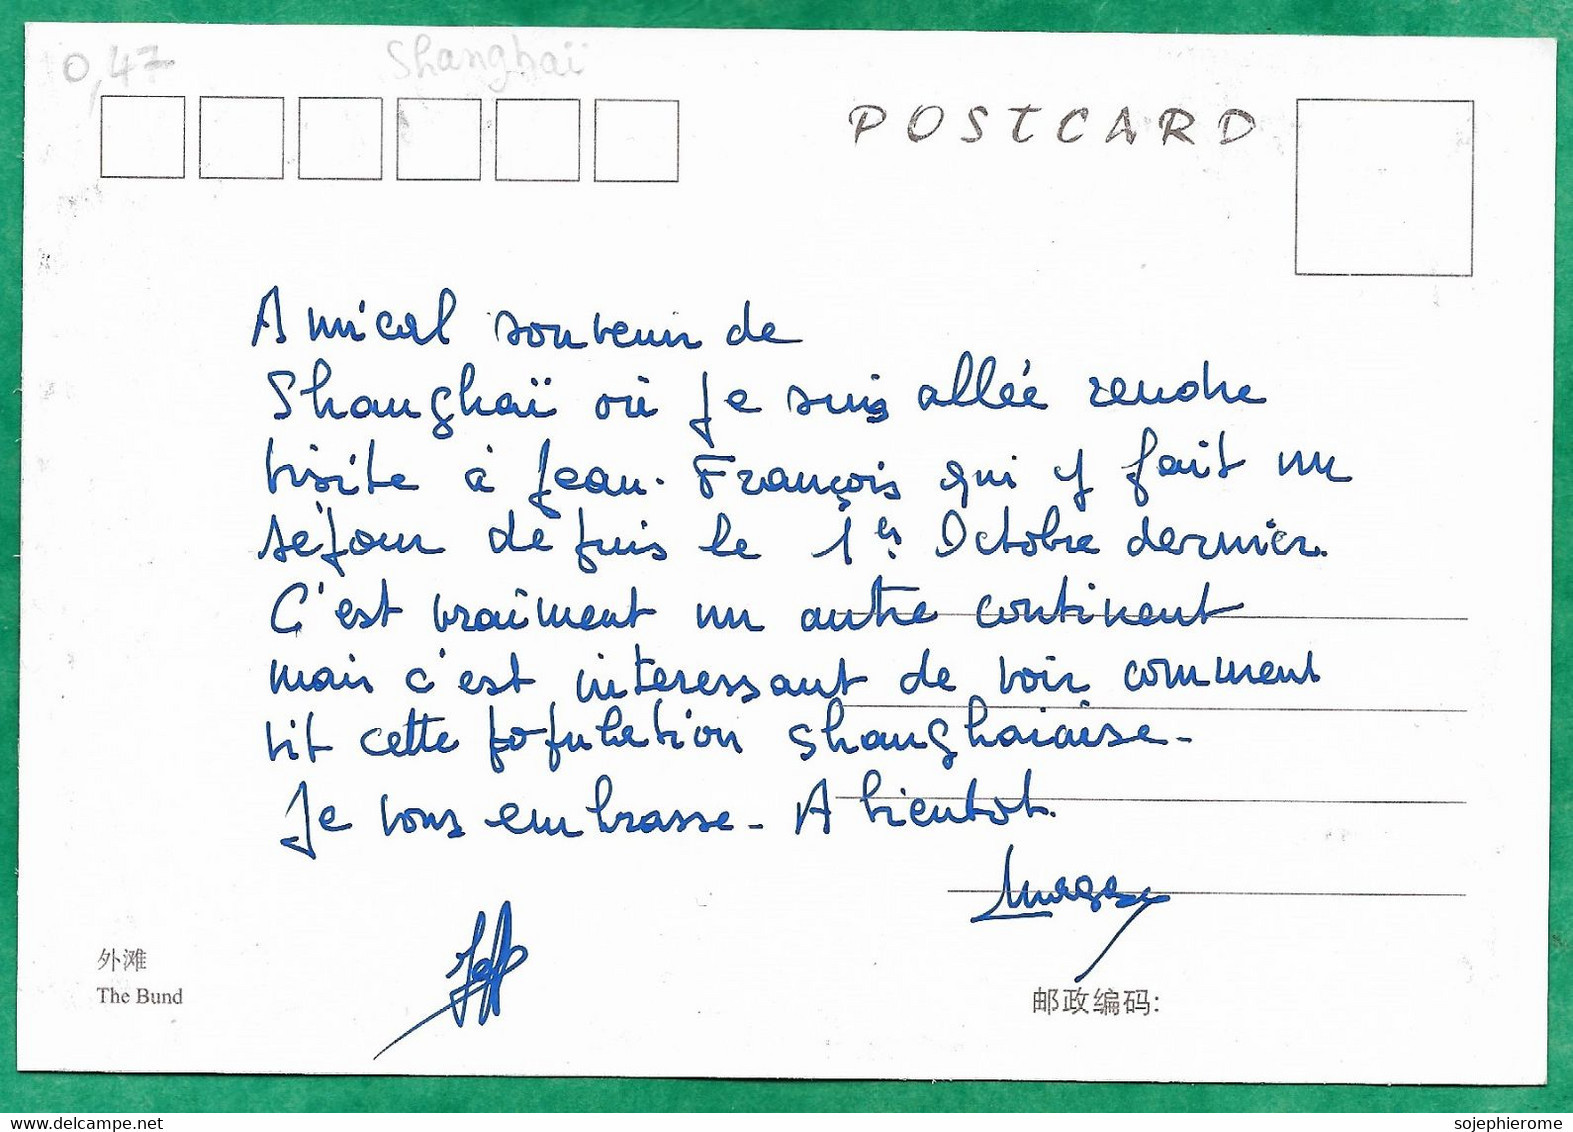 0,47
Shanghaï
POSTCARD
Amical souvenir de
Shanghaï où je suis allée rendre
visite à Jean-François qui y fait un
séjour depuis le 1er Octobre dernier.
C'est vraiment un autre continent
mais c'est interessant de voir comment
vit cette population shanghaiaise.
Je vous embrasse. A bientot.
Jeff
外滩
The Bund
邮政编码:
www.delcampe.net
sojephierome